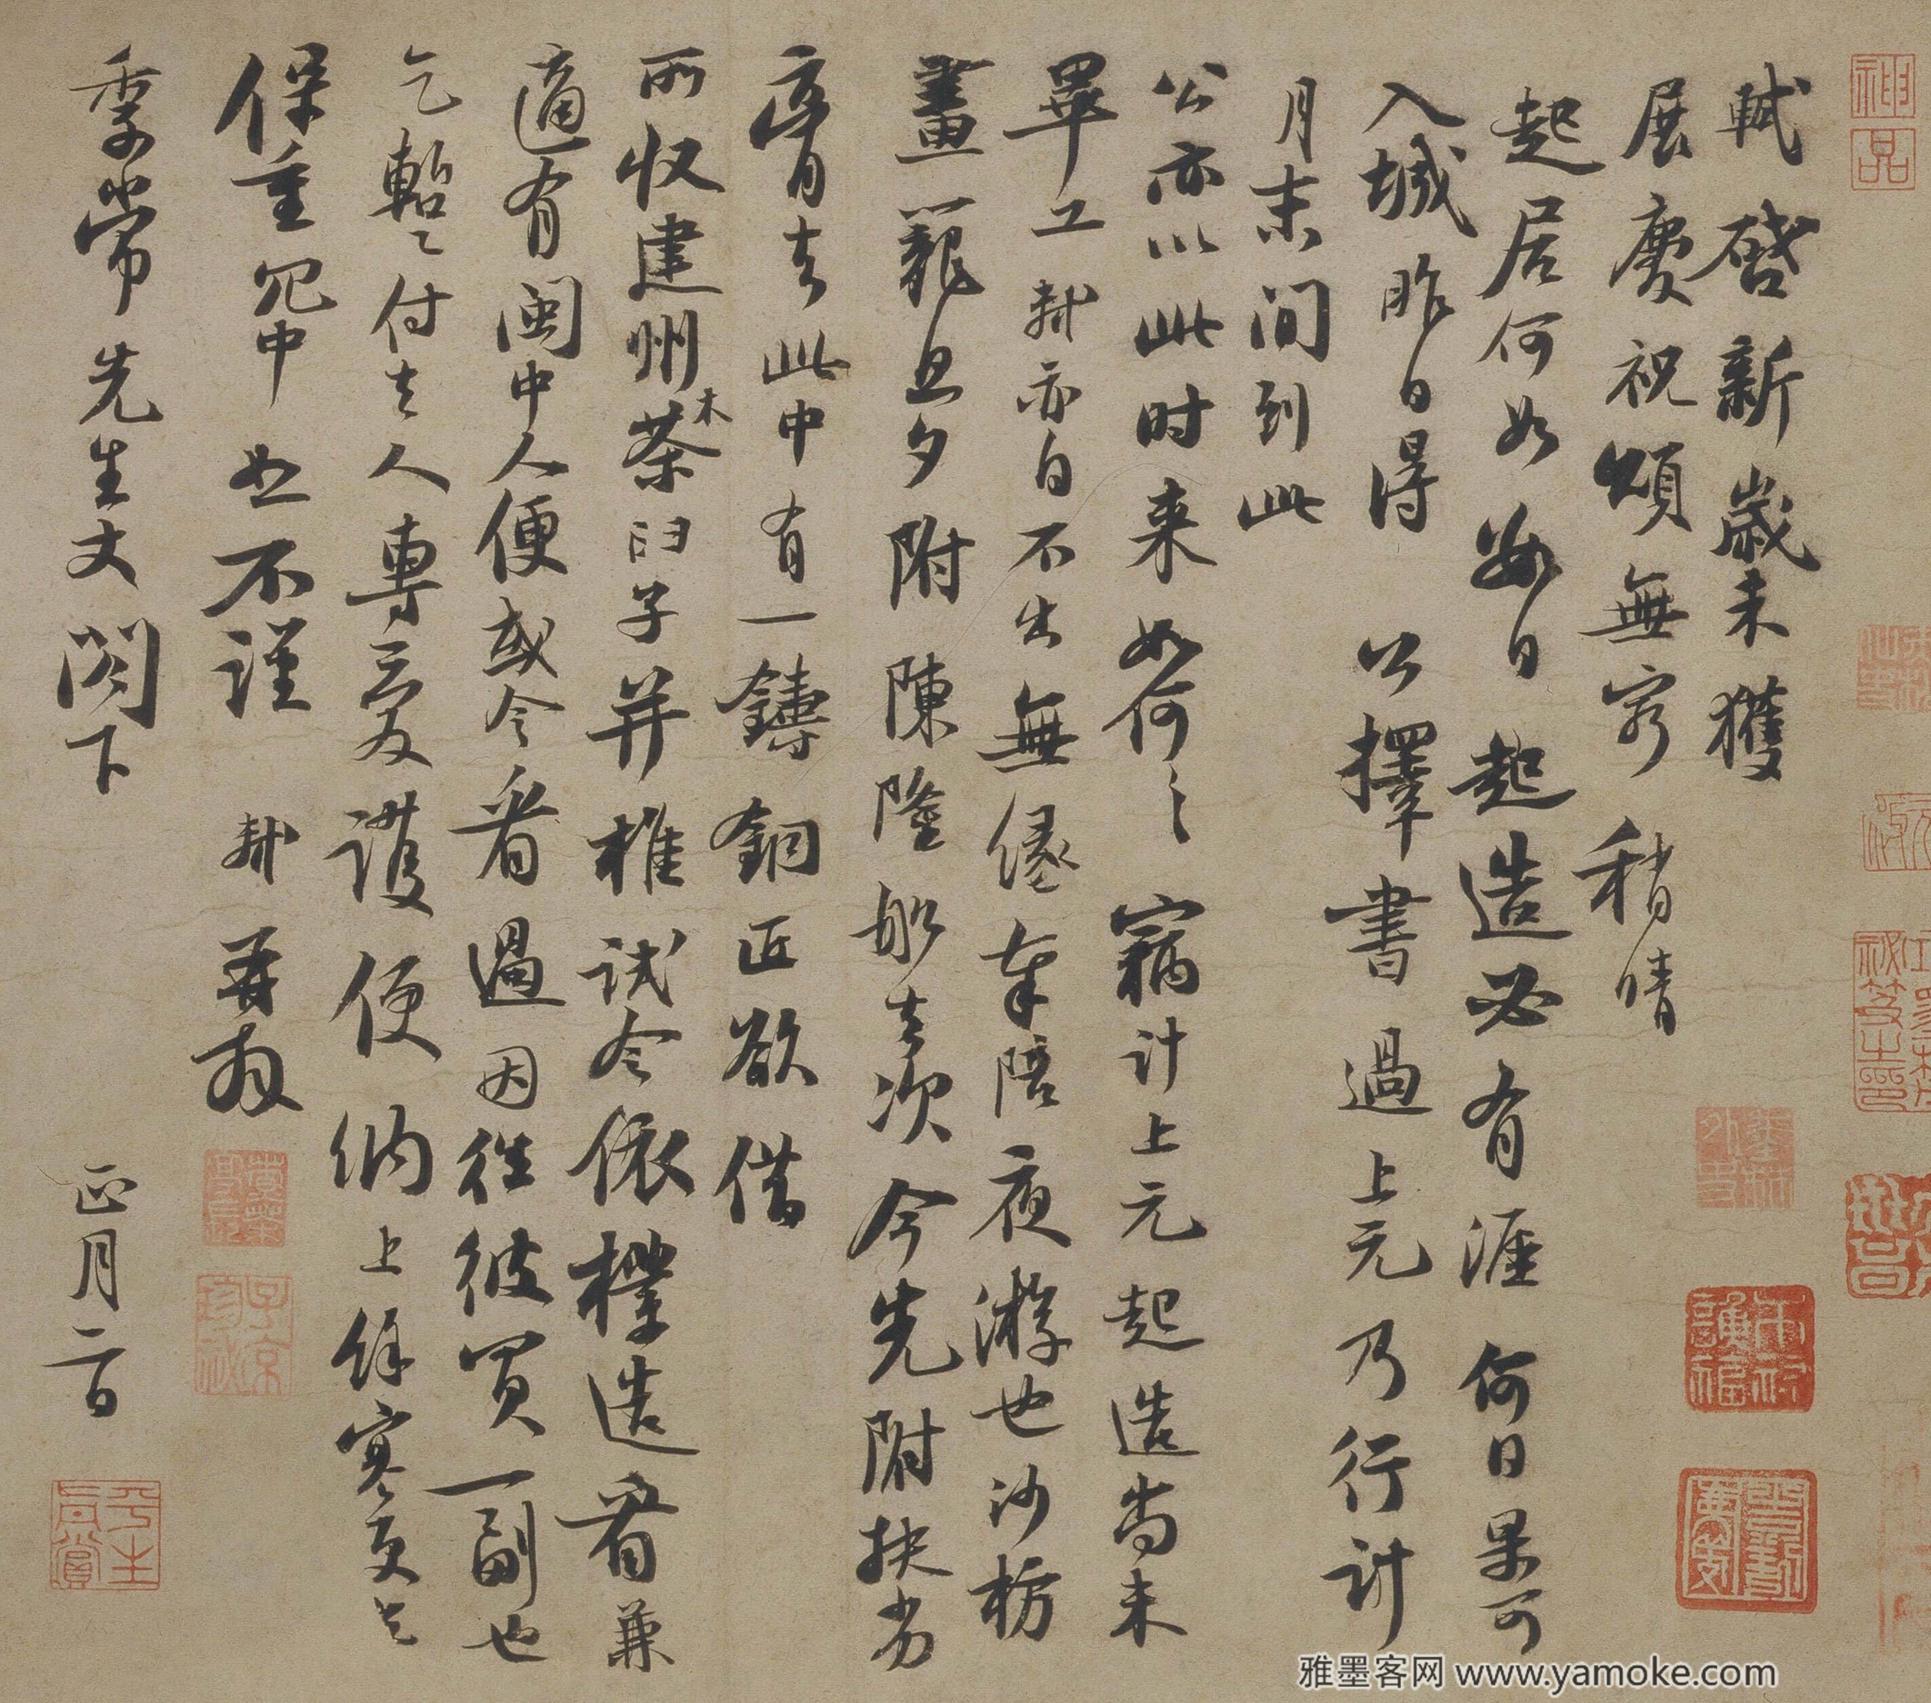 軾啓新歲未獲
展慶祝頌無窮稍晴
起居何如數日起造必有涯何日果可
入城昨日得公擇書過上元乃行計
月末間到此
公亦以此時來如何々竊計上元起造尚未
畢工軾亦自不出無緣奉陪夜游也沙枋
畫籠旦夕附陳隆船去次今先附扶劣
膏去此中有一鑄銅匠欲借
所收建州木茶臼子并椎試令依樣造看兼
適有閩中人便或令看過因往彼買一副也
乞暫々付去人專愛護便納上餘寒更乞
保重冗中恕不謹軾再拜
季常先生丈閣下正月二日
神
品
平生真賞
子京珍藏
雅墨客网 www.yamoke.com